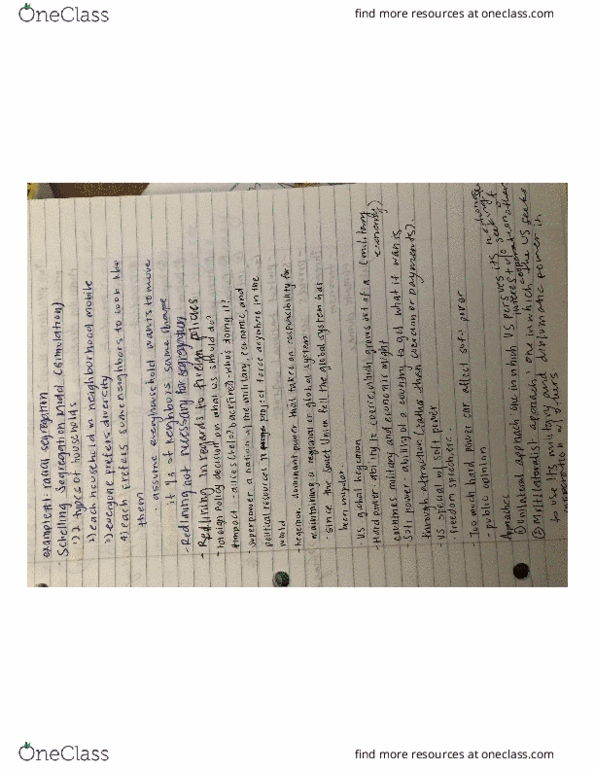 OneClass
find more resources at oneclass.com
example: racial segregation
- Schelling Segregation Model (simulation)
1) 2 types of households
2) each household in neighborhood mobile
3) everyone prefers diversity
4) each prefers some neighbors to look like
them
- assume every household wants to move
if % of neighbors same
- Redlining not necessary for segregation
- Redlining in regards to foreign
- foreign Policy decision on what US should do?
impact - allies (help? backfire?) - who's doing it?
- Superpower a nation of the military, economic, and
political resources project force anywhere in the
world
- hegemon, dominant power that takes on responsibility for
maintaining a regional or global system
- since the Soviet Union fell the global system has
been unipolar
US global hegemon
- Hard power ability to coerce, which grows out of a (military
economy)
countries military and economic might
- Soft power ability of a country to get what it wants
through attraction (rather than coercion or payments).
- US of soft power
freedom speech etc.
- Too much hard power can affect soft power
- public opinion
Approaches
① Unilateral approach one in which US pursues its national
interest w/o seeking
cooperation other
② Multilateralist approach: one in which the US seeks
to use its military and diplomatic power in
cooperation w/ others
OneClass
find more resources at oneclass.com